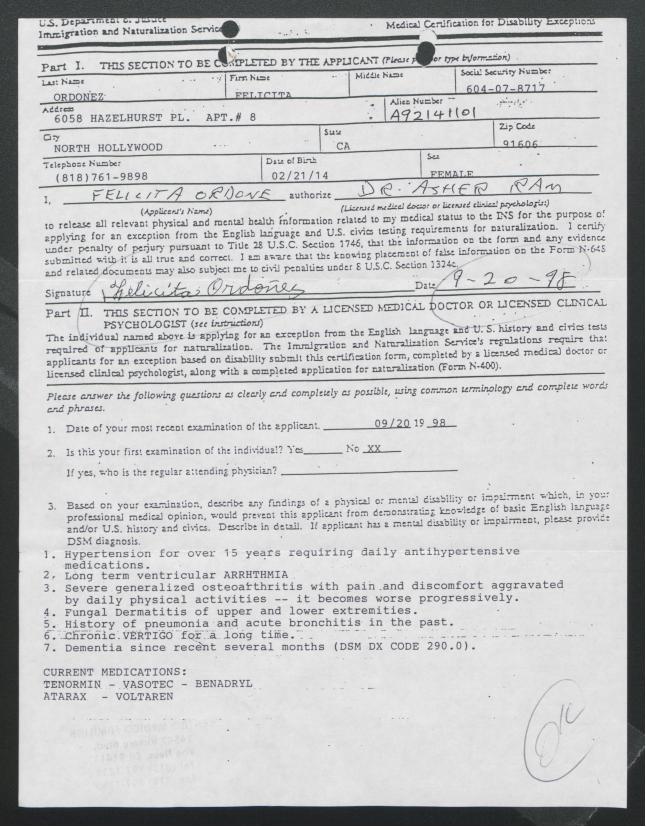 U.S. Department of Justice
Immigration and Naturalization Service
Medical Certification for Disability Exceptions
Part I. THIS SECTION TO BE COMPLETED BY THE APPLICANT (Please or type information)
Last Name First Name Middle Name Social Security Number
ORDONEZ FELICITA 604-07-8717
Address Alien Number
6058 HAZELHURST PL. APT.# 8 A92141101
City State Zip Code
NORTH HOLLYWOOD CA 91606
Telephone Number Date of Birth Sex
(818)761-9898 02/21/14 FEMALE
I, FELICITA ORDONE authorize DR. ASHER RAM
(Applicant's Name) (Licensed medical doctor or licensed clinical psychologist)
to release all relevant physical and mental health information related to my medical status to the INS for the purpose of
applying for an exception from the English language and U.S. civics testing requirements for naturalization. I certify
under penalty of perjury pursuant to Title 28 U.S.C. Section 1746, that the information on the form and any evidence
submitted with it is all true and correct. I am aware that the knowing placement of false information on the Form N-648
and related documents may also subject me to civil penalties under 8 U.S.C. Section 1324c.
Signature Felicita Ordoñez Date 9-20-98
Part II. THIS SECTION TO BE COMPLETED BY A LICENSED MEDICAL DOCTOR OR LICENSED CLINICAL
PSYCHOLOGIST (see instructions)
The individual named above is applying for an exception from the English language and U.S. history and civics tests
required of applicants for naturalization. The Immigration and Naturalization Service's regulations require that
applicants for an exception based on disability submit this certification form, completed by a licensed medical doctor or
licensed clinical psychologist, along with a completed application for naturalization (Form N-400).
Please answer the following questions as clearly and completely as possible, using common terminology and complete words
and phrases.
1. Date of your most recent examination of the applicant. 09/20 19 98
2. Is this your first examination of the individual? Yes No XX
If yes, who is the regular attending physician?
3. Based on your examination, describe any findings of a physical or mental disability or impairment which, in your
professional medical opinion, would prevent this applicant from demonstrating knowledge of basic English language
and/or U.S. history and civics. Describe in detail. If applicant has a mental disability or impairment, please provide
DSM diagnosis.
1. Hypertension for over 15 years requiring daily antihypertensive
medications.
2. Long term ventricular ARRHTHMIA
3. Severe generalized osteoarthritis with pain and discomfort aggravated
by daily physical activities -- it becomes worse progressively.
4. Fungal Dermatitis of upper and lower extremities.
5. History of pneumonia and acute bronchitis in the past.
6. Chronic VERTIGO for a long time.
7. Dementia since recent several months (DSM DX CODE 290.0).
CURRENT MEDICATIONS:
TENORMIN - VASOTEC - BENADRYL
ATARAX - VOLTAREN
OK